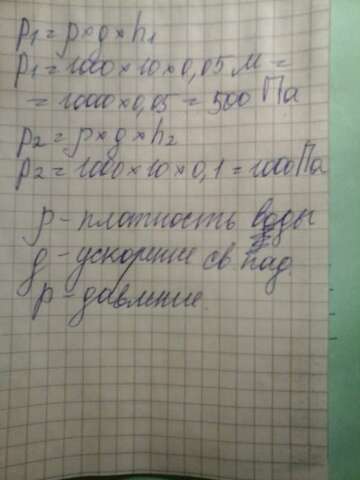 p₁ = ρ × g × h₁
p₁ = 1000 × 10 × 0,05 м =
= 10000 × 0,05 = 500 Па
p₂ = ρ × g × h₂
p₂ = 1000 × 10 × 0,1 = 1000 Па
ρ - платность воды
g - ускорение св пад
p - давление